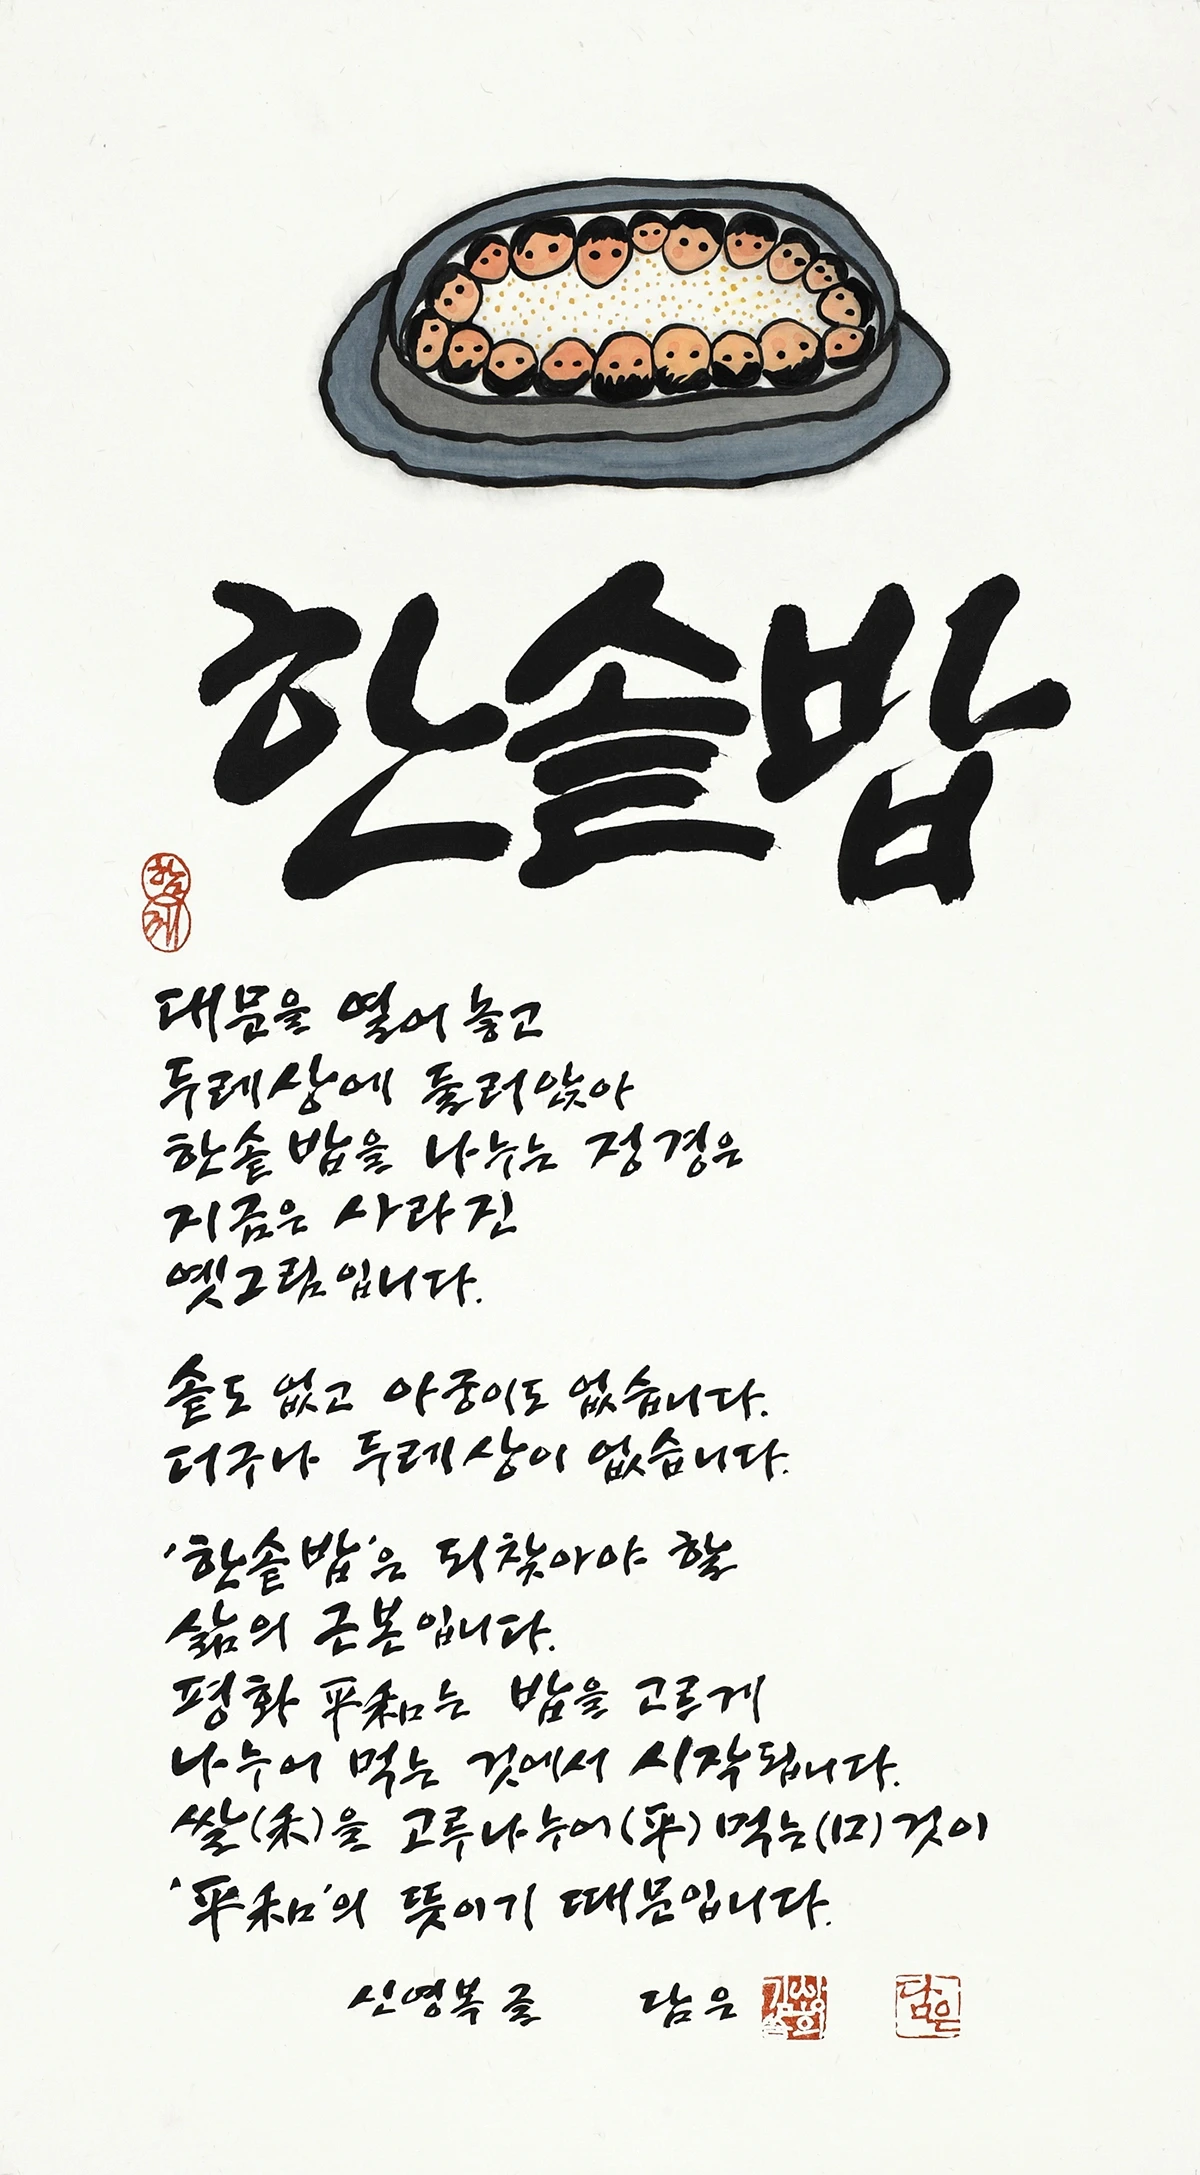 한솥밥
함께
대문을 열어 놓고
두레상에 둘러앉아
한솥밥을 나누는 정경은
지금은 사라진
옛그림입니다.
솥도 없고 아궁이도 없습니다.
더구나 두레상이 없습니다.
'한솥밥'은 되찾아야 할
삶의 근본입니다.
평화 平和는 밥을 고르게
나누어 먹는 것에서 시작됩니다.
쌀(禾)을 고루나누어(平) 먹는(口)것이
'平和'의 뜻이기 때문입니다.
신영복 글 담은
담은